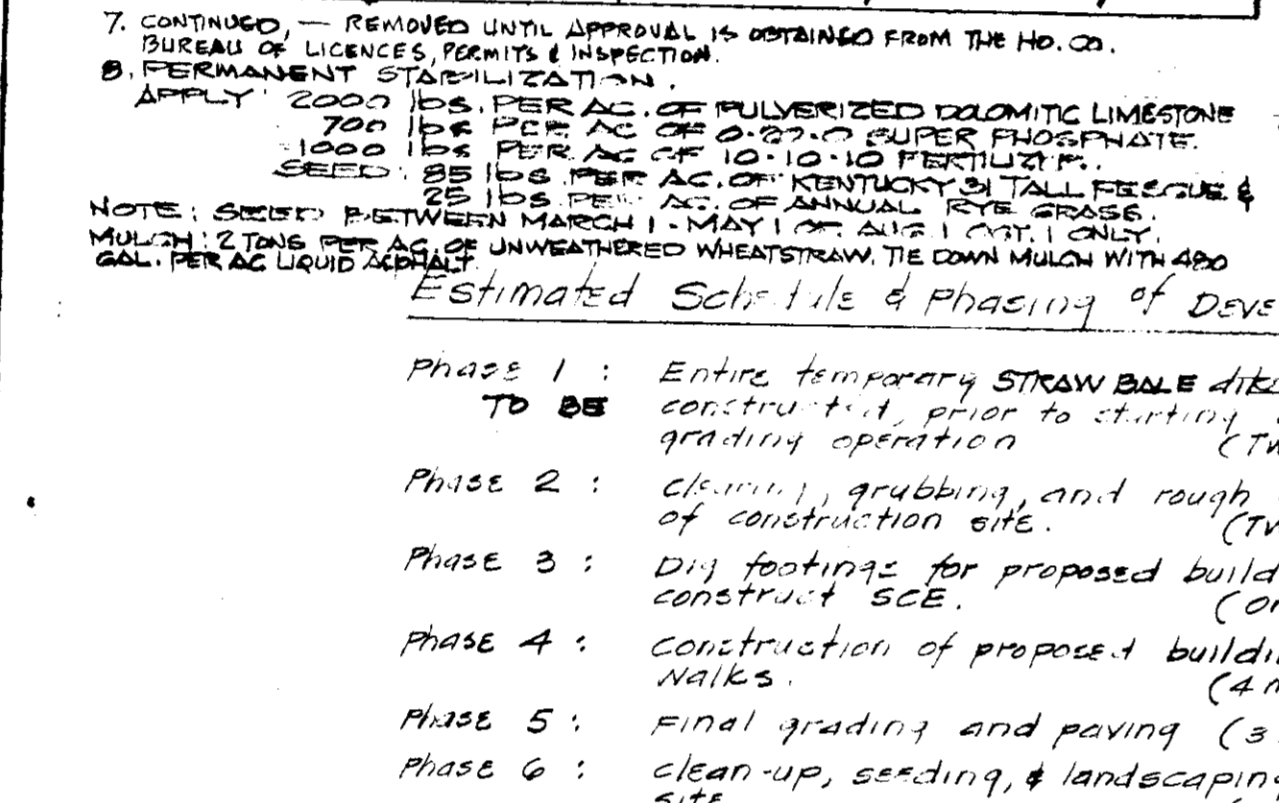 7. CONTINUED, — REMOVED UNTIL APPROVAL IS OBTAINED FROM THE HO. CO.
BUREAU OF LICENCES, PERMITS & INSPECTION.
8. PERMANENT STABILIZATION.
APPLY 2000 lbs. PER AC. OF PULVERIZED DOLOMITIC LIMESTONE
700 lbs PER AC OF SUPER PHOSPHATE.
1000 lbs PER AC OF 10-10-10 FERTILIZER.
SEED: 85 lbs PER AC. OF KENTUCKY 31 TALL FESCUE &
25 lbs PER AC. OF ANNUAL RYE GRASS.
NOTE: SEED BETWEEN MARCH 1 - MAY 1 OR AUG. 1 OCT. 1 ONLY.
MULCH: 2 TONS PER AC. OF UNWEATHERED WHEATSTRAW, TIE DOWN MULCH WITH
GAL. PER AC LIQUID ASPHALT.
Estimated Schedule & Phasing of DEVE
Phase 1 : Entire temporary STRAW BALE dike
TO BE constructed, prior to starting
grading operation (TW
Phase 2 : Clearing, grubbing, and rough
of construction site. (TW
Phase 3 : Dig footings for proposed build
construct SCE. (On
Phase 4 : Construction of proposed buildi
Walks. (4 m
Phase 5 : Final grading and paving (3
Phase 6 : Clean-up, seeding, & landscaping
site